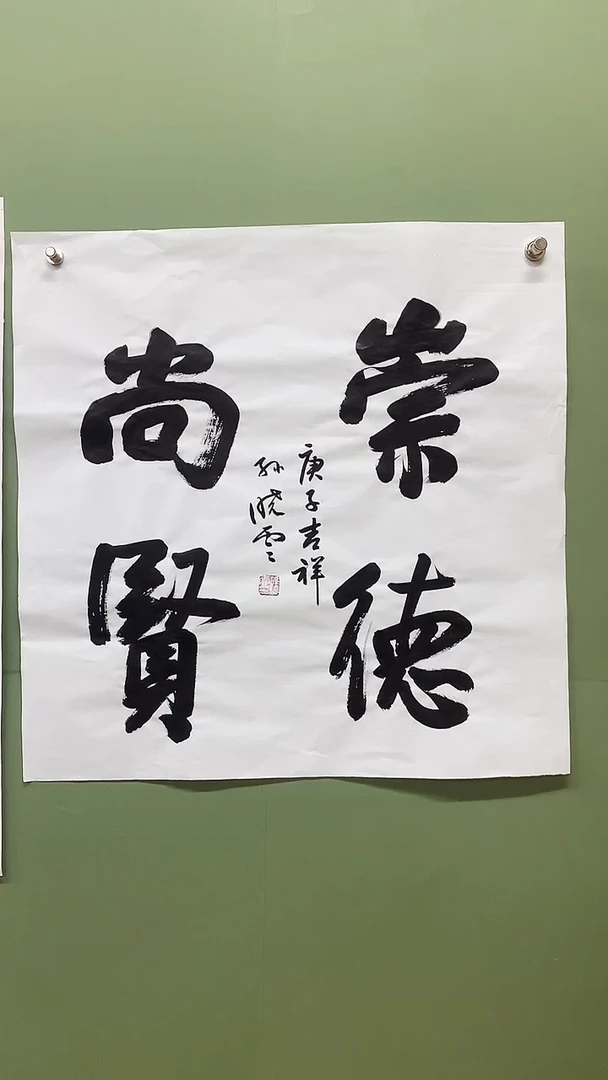 崇德
尚賢
庚子吉祥
孙晓雲